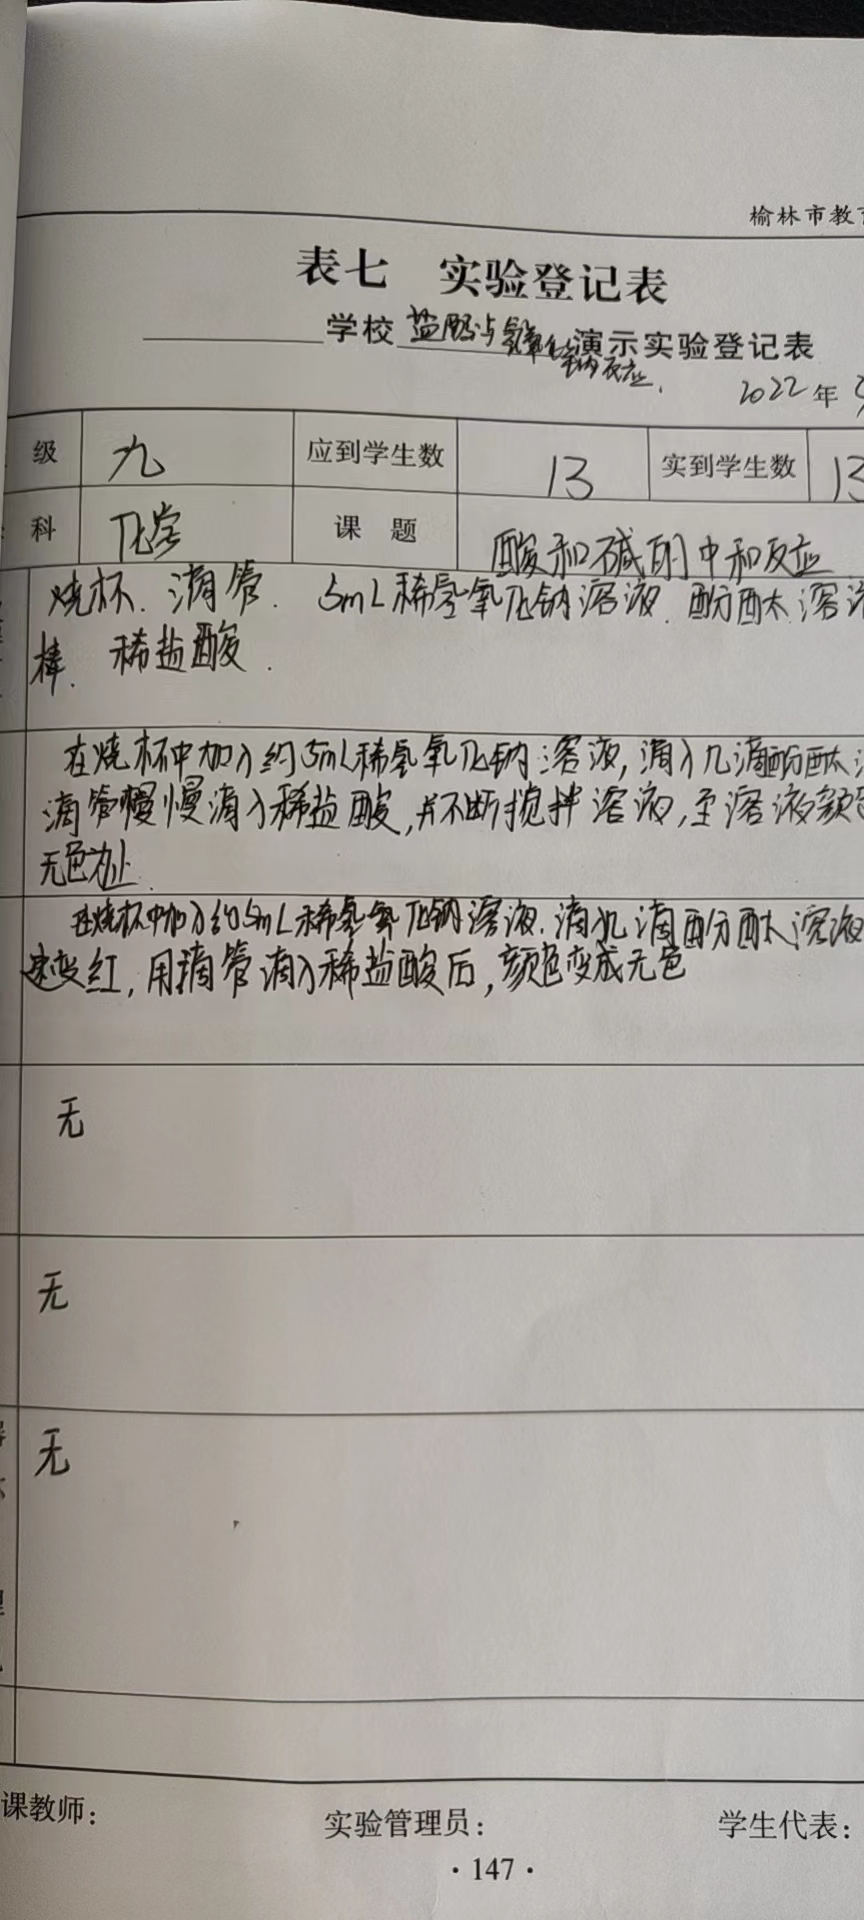 榆林市教育
表七 实验登记表
学校 盐酸与氢氧化钠反应 演示实验登记表
2022年
级 九 应到学生数 13 实到学生数 13
科 化学 课 题 酸和碱的中和反应
烧杯、滴管、5mL稀氢氧化钠溶液、酚酞溶液
棒、稀盐酸.
在烧杯中加入约5mL稀氢氧化钠溶液,滴入几滴酚酞
滴管慢慢滴入稀盐酸,并不断搅拌溶液,至溶液颜色
无色为止.
在烧杯中加入约5mL稀氢氧化钠溶液.滴入几滴酚酞溶液
速变红,用滴管滴入稀盐酸后,颜色变成无色
无
无
无
课教师: 实验管理员: 学生代表:
·147·